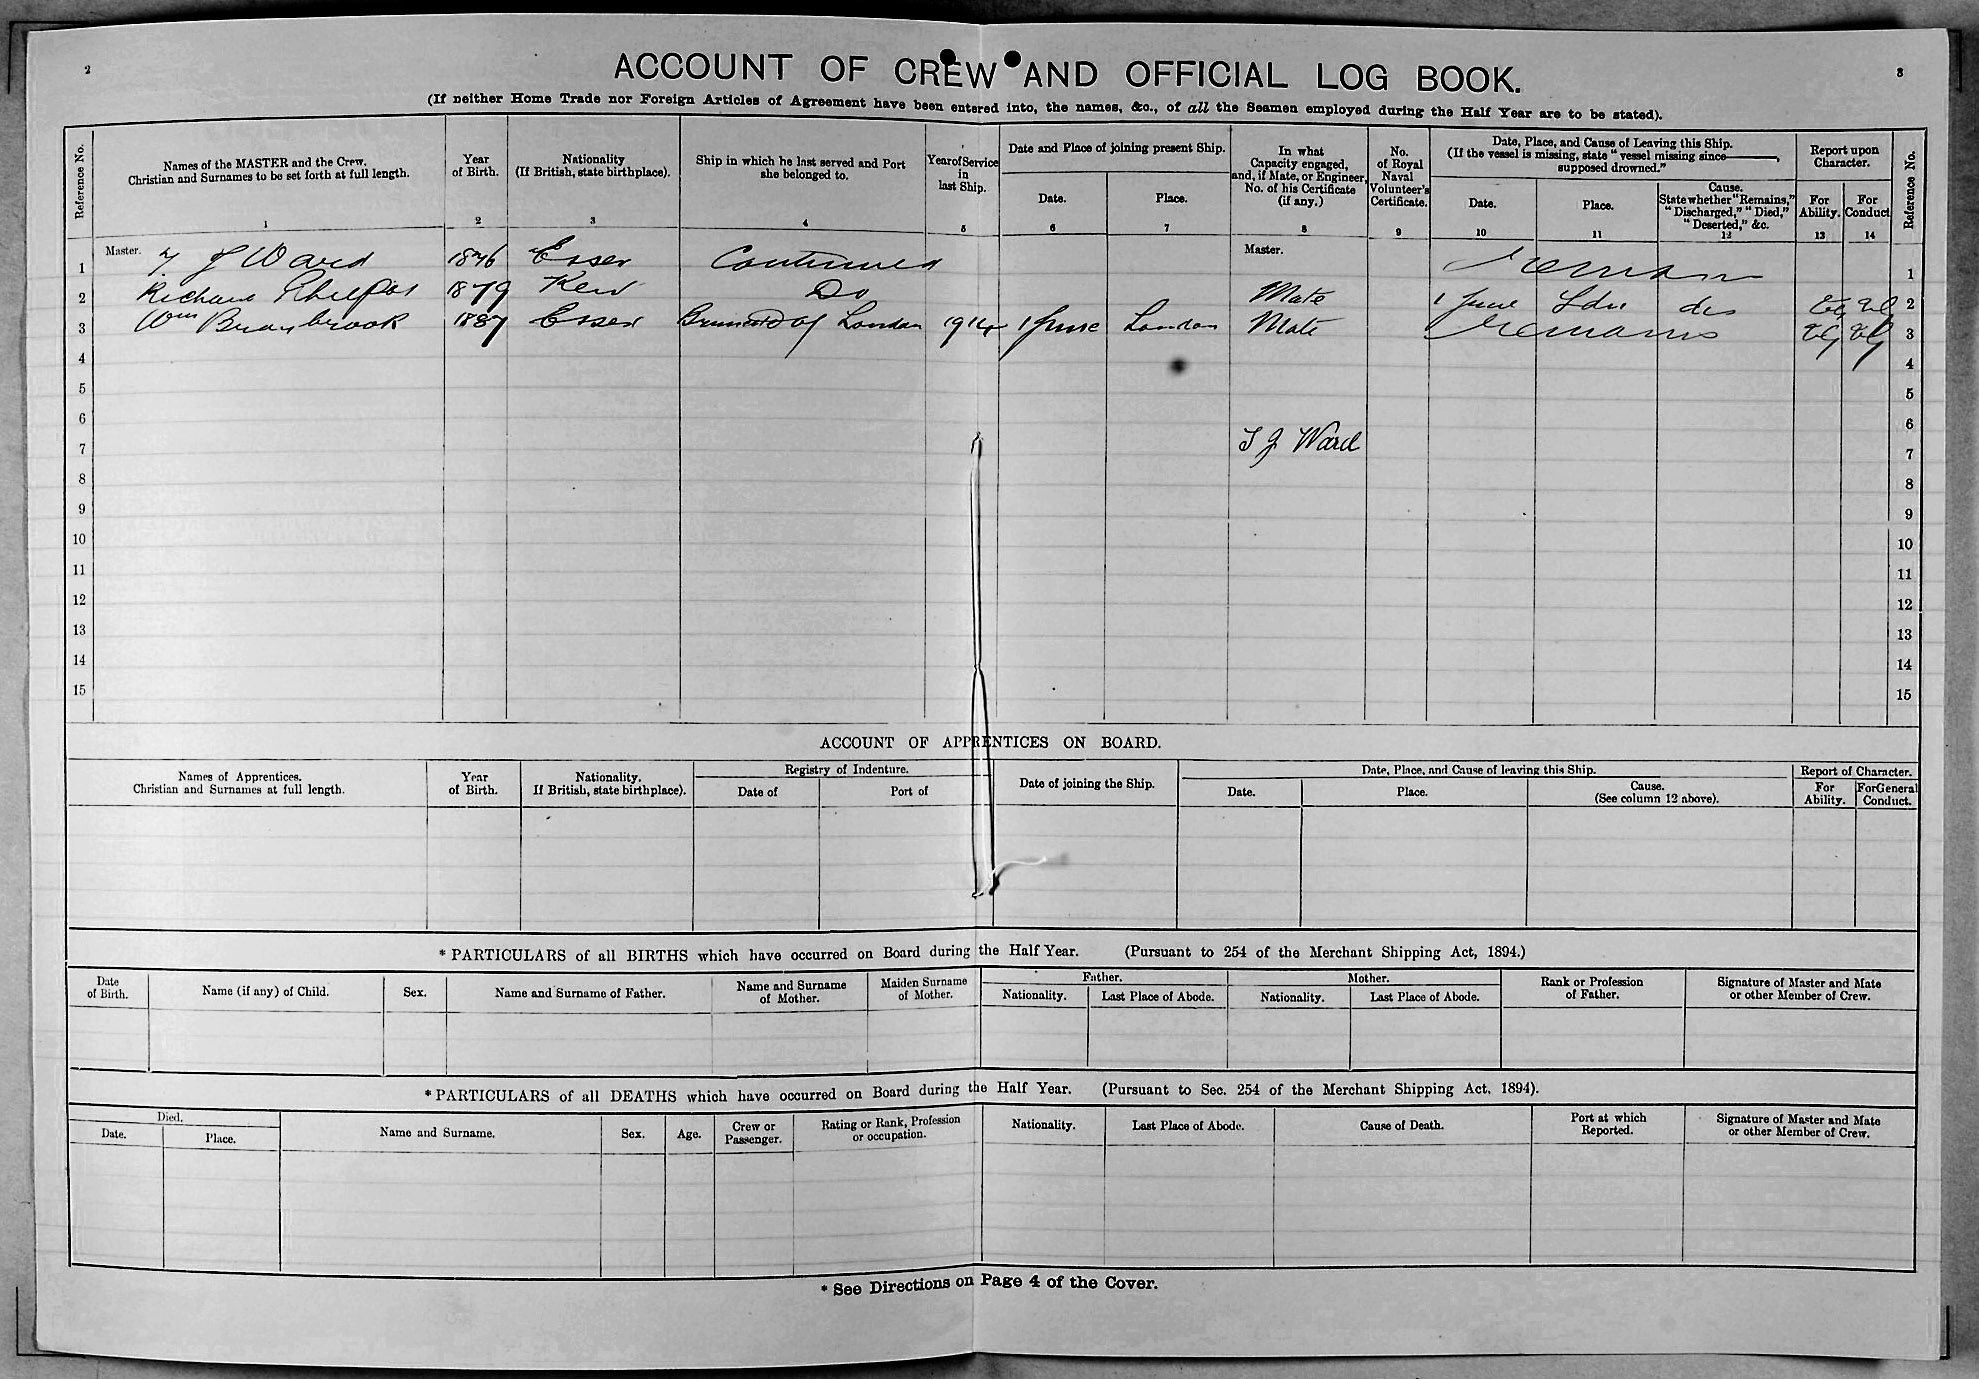 2
3
ACCOUNT OF CREW AND OFFICIAL LOG BOOK.
(If neither Home Trade nor Foreign Articles of Agreement have been entered into, the names, &c., of all the Seamen employed during the Half Year are to be stated).
Reference No.
Names of the MASTER and the Crew.
Christian and Surnames to be set forth at full length.
1
Year
of Birth.
2
Nationality
(If British, state birthplace).
3
Ship in which he last served and Port
she belonged to.
4
Year of Service
in
last Ship.
5
Date and Place of joining present Ship.
Date.
6
Place.
7
In what
Capacity engaged,
and, if Mate, or Engineer,
No. of his Certificate
(if any.)
8
No.
of Royal
Naval
Volunteer's
Certificate.
9
Date, Place, and Cause of Leaving this Ship.
(If the vessel is missing, state "vessel missing since———,
supposed drowned."
Date.
10
Place.
11
Cause.
State whether "Remains,"
"Discharged," "Died,"
"Deserted," &c.
12
Report upon
Character.
For
Ability.
13
For
Conduct
14
Reference No.
1 Master. J Ward 1876 Essex Continued Master. Remain 1
2 Richard 1879 Do Mate 1 June Ldn dis VG VG 2
3 Wm Braybrook 1887 Essex of London 1914 1 June London Mate Remains VG VG 3
4 4
5 5
6 6
7 T J Ward 7
8 8
9 9
10 10
11 11
12 12
13 13
14 14
15 15
ACCOUNT OF APPRENTICES ON BOARD.
Names of Apprentices.
Christian and Surnames at full length.
Year
of Birth.
Nationality.
If British, state birthplace).
Registry of Indenture.
Date of
Port of
Date of joining the Ship.
Date, Place, and Cause of leaving this Ship.
Date.
Place.
Cause.
(See column 12 above).
Report of Character.
For
Ability.
For General
Conduct.
* PARTICULARS of all BIRTHS which have occurred on Board during the Half Year. (Pursuant to 254 of the Merchant Shipping Act, 1894.)
Date
of Birth.
Name (if any) of Child.
Sex.
Name and Surname of Father.
Name and Surname
of Mother.
Maiden Surname
of Mother.
Father.
Nationality.
Last Place of Abode.
Mother.
Nationality.
Last Place of Abode.
Rank or Profession
of Father.
Signature of Master and Mate
or other Member of Crew.
* PARTICULARS of all DEATHS which have occurred on Board during the Half Year. (Pursuant to Sec. 254 of the Merchant Shipping Act, 1894).
Died.
Date.
Place.
Name and Surname.
Sex.
Age.
Crew or
Passenger.
Rating or Rank, Profession
or occupation.
Nationality.
Last Place of Abode.
Cause of Death.
Port at which
Reported.
Signature of Master and Mate
or other Member of Crew.
* See Directions on Page 4 of the Cover.